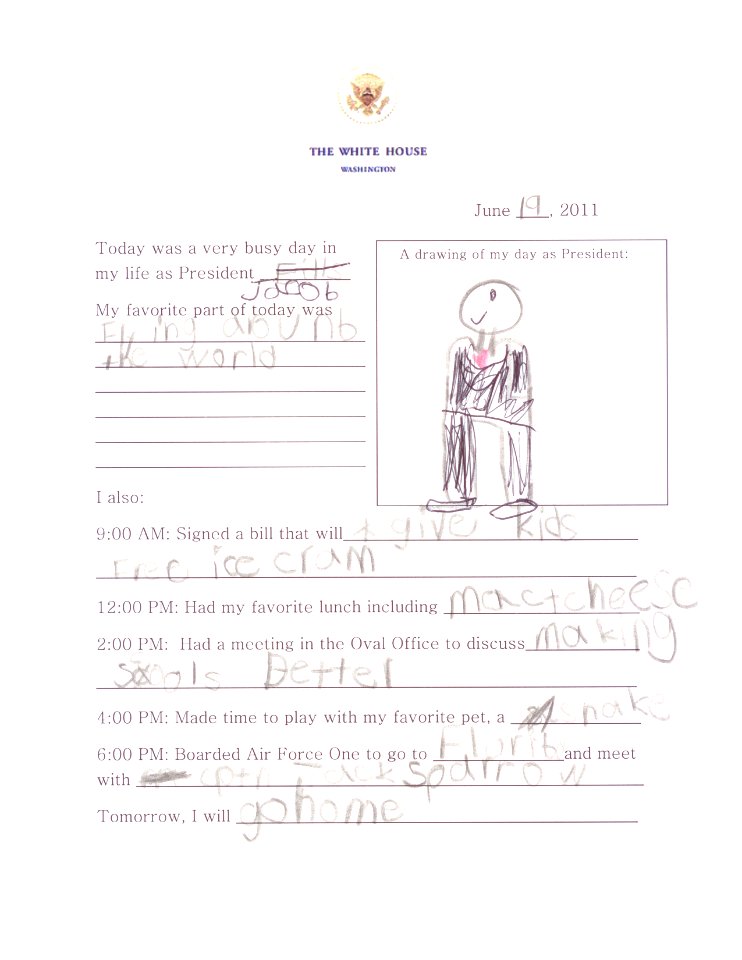 THE WHITE HOUSE
WASHINGTON
June 19, 2011
Today was a very busy day in
my life as President
Jacob
My favorite part of today was
Flying abunb
the world
A drawing of my day as President:
I also:
9:00 AM: Signed a bill that will give kids
free ice cram
12:00 PM: Had my favorite lunch including mac+cheese
2:00 PM: Had a meeting in the Oval Office to discuss making
better
4:00 PM: Made time to play with my favorite pet, a snake
6:00 PM: Boarded Air Force One to go to and meet
with Jack Sparrow
Tomorrow, I will go home